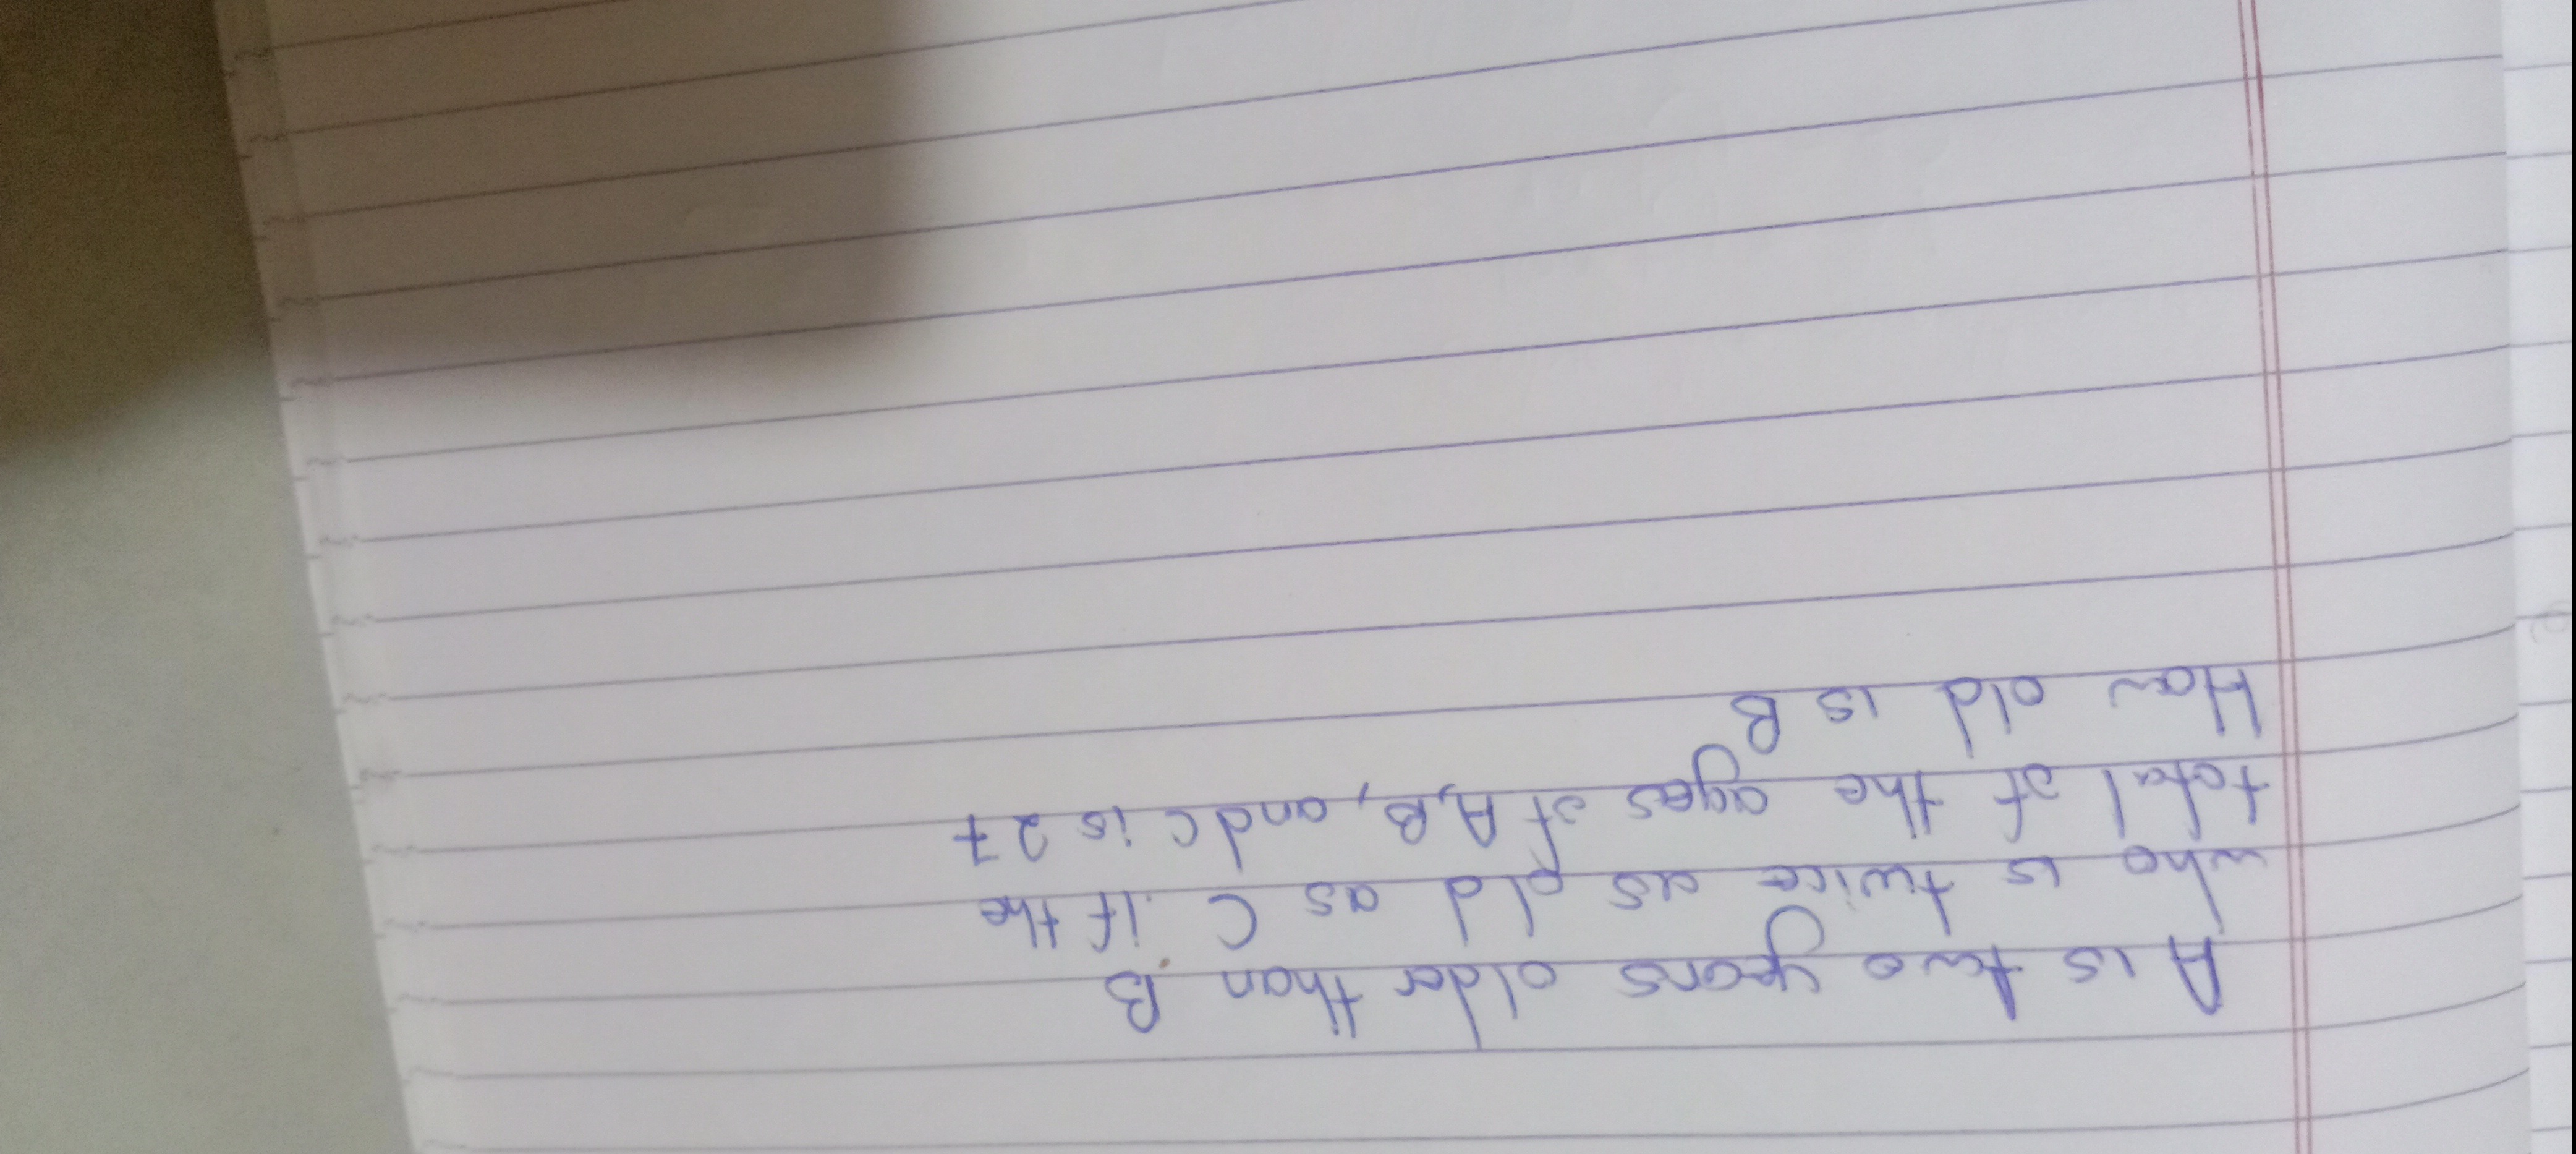 A is two years older than B
who is twice as old as C. If the
total of the ages of A, B, and C is 27
How old is B